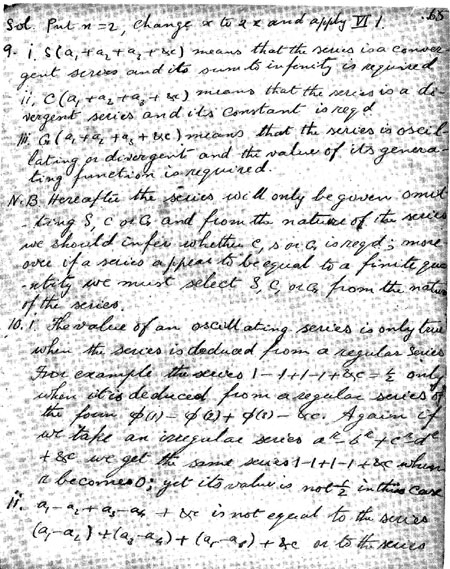 65
Sol. Put n=2, change x to 2x and apply VI 1.
9. i. S(a₁+a₂+a₃+&c) means that the series is a conver-
gent series and its sum to infinity is required
ii. C(a₁+a₂+a₃+&c) means that the series is a di-
vergent series and its constant is reqd
iii. G(a₁+a₂+a₃+&c) means that the series is oscil-
lating or divergent and the value of its genera-
ting function is required.
N.B. Hereafter the series will only be given omit
-ting S, C or G and from the nature of the series
we should infer whether C, S or G is reqd; more
over if a series appear to be equal to a finite qua
-ntity we must select S, C, or G from the nature
of the series.
10. 1. The value of an oscillating series is only true
when the series is deduced from a regular series
For example the series 1-1+1-1+&c=½ only
when it is deduced from a regular series of
the form φ(1)-φ(2)+φ(3)-&c. Again if
we take an irregular series aˣ-bˣ+cˣ-dˣ
+&c we get the same series 1-1+1-1+&c when
x becomes 0; yet its value is not ½ in this case
ii. a₁-a₂+a₃-a₄+&c is not equal to the series
(a₁-a₂)+(a₃-a₄)+(a₅-a₆)+&c or to the series